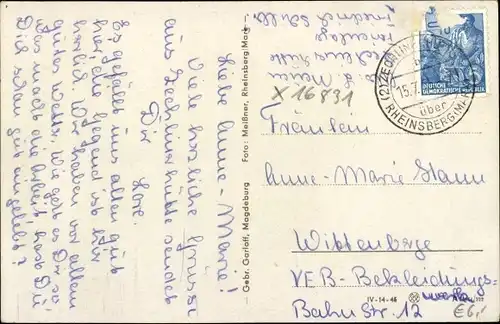 Liebe Anne-Marie!
Viele herzliche Grüsse
aus Zechlinerhütte sendet
Dir Lore.
Es gefällt uns allen gut
hier, die Gegend ist
herrlich. Wir haben vor allem
gutes Wetter. Wie geht es Dir so,
was macht die Arbeit, hast Du
Dich schon gut eingelebt?
Gebr. Garloff, Magdeburg Foto: Meißner, Rheinsberg/Mark
Zechlinerhütte
Friedrich
X 16831
DEUTSCHE
DEMOKRATISCHE REPUBLIK
(2) ZECHLINERHÜTTE
15.7.
über
RHEINSBERG (MARK)
Fräulein
Anne-Marie Stann
Wittenberge
VEB-Bekleidungs-
werke
Bahn Str. 12
IV-14-45
€6,-